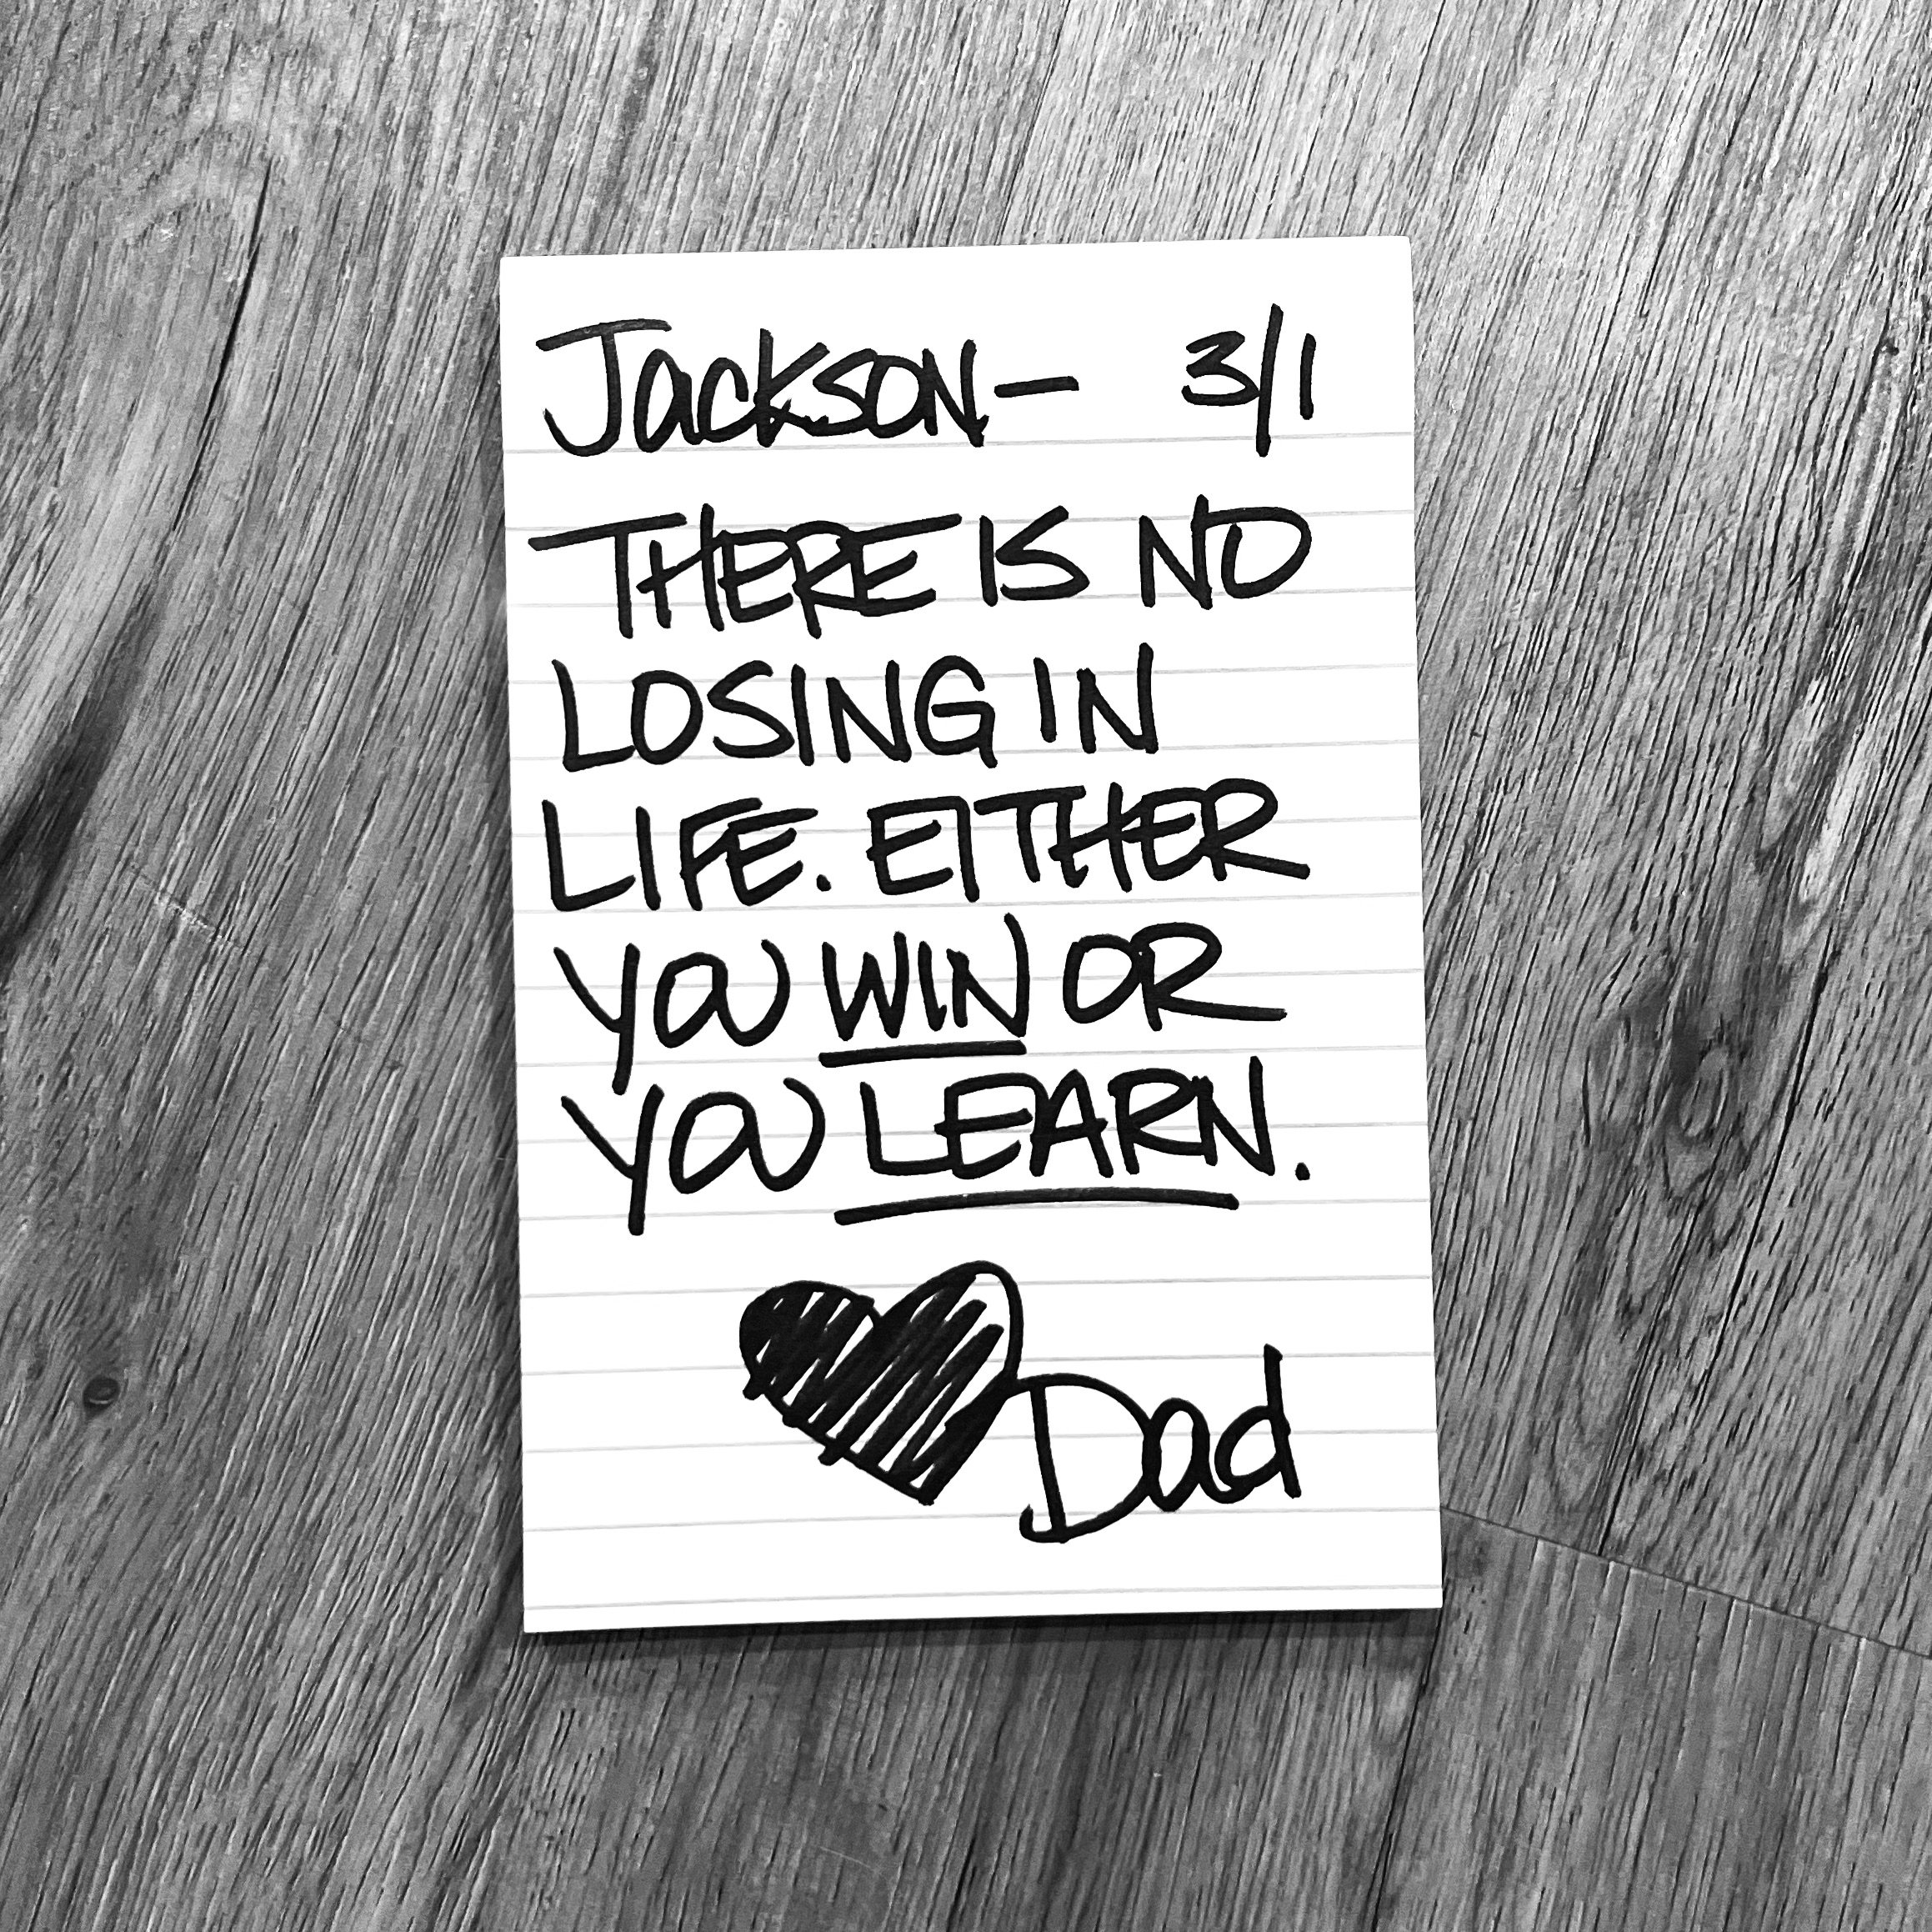 Jackson- 3/1
THERE IS NO
LOSING IN
LIFE. EITHER
YOU WIN OR
YOU LEARN.
Dad